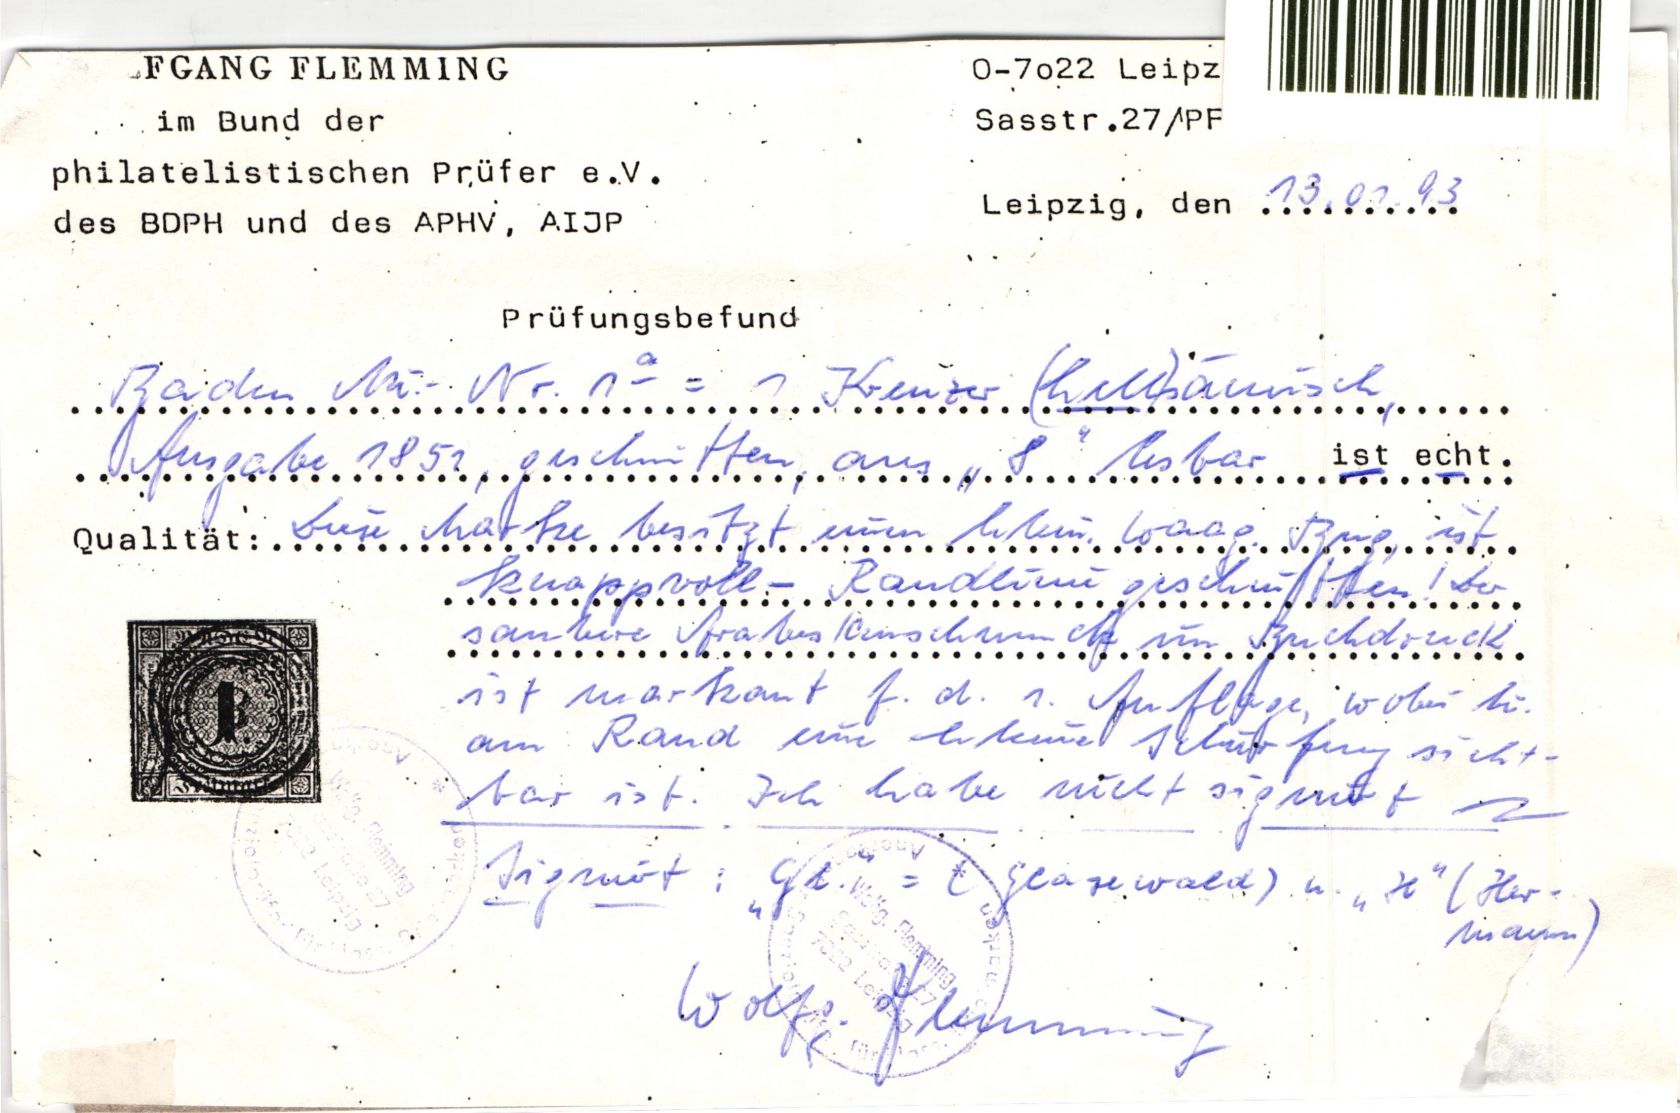 FGANG FLEMMING
im Bund der
philatelistischen Prüfer e.V.
des BDPH und des APHV, AIJP
O-7o22 Leipz
Sasstr.27/PF
Leipzig, den 13.01.93
Prüfungsbefund
Baden Mi.- Nr. 1a = 1 Kreuzer (hell) sämisch,
Ausgabe 1851, geschnitten, aus "8" lesbar ist echt.
Qualität: Diese Marke besitzt einen klein. waag. Bug, ist
knappvoll - Randlinie geschnitten! Der
saubere Arabeskenschmuck im Buchdruck
ist markant f. d. 1. Auflage, wobei li.
am Rand eine kleine Schürfung sicht-
bar ist. Ich habe nicht signiert
Signiert: "Gl." = (Glasewald) u. "H" (Her-
mann)
Wolfg. Flemming
1
Wolfg. Flemming
7022 Leipzig
Wolfg. Flemming
7022 Leipzig